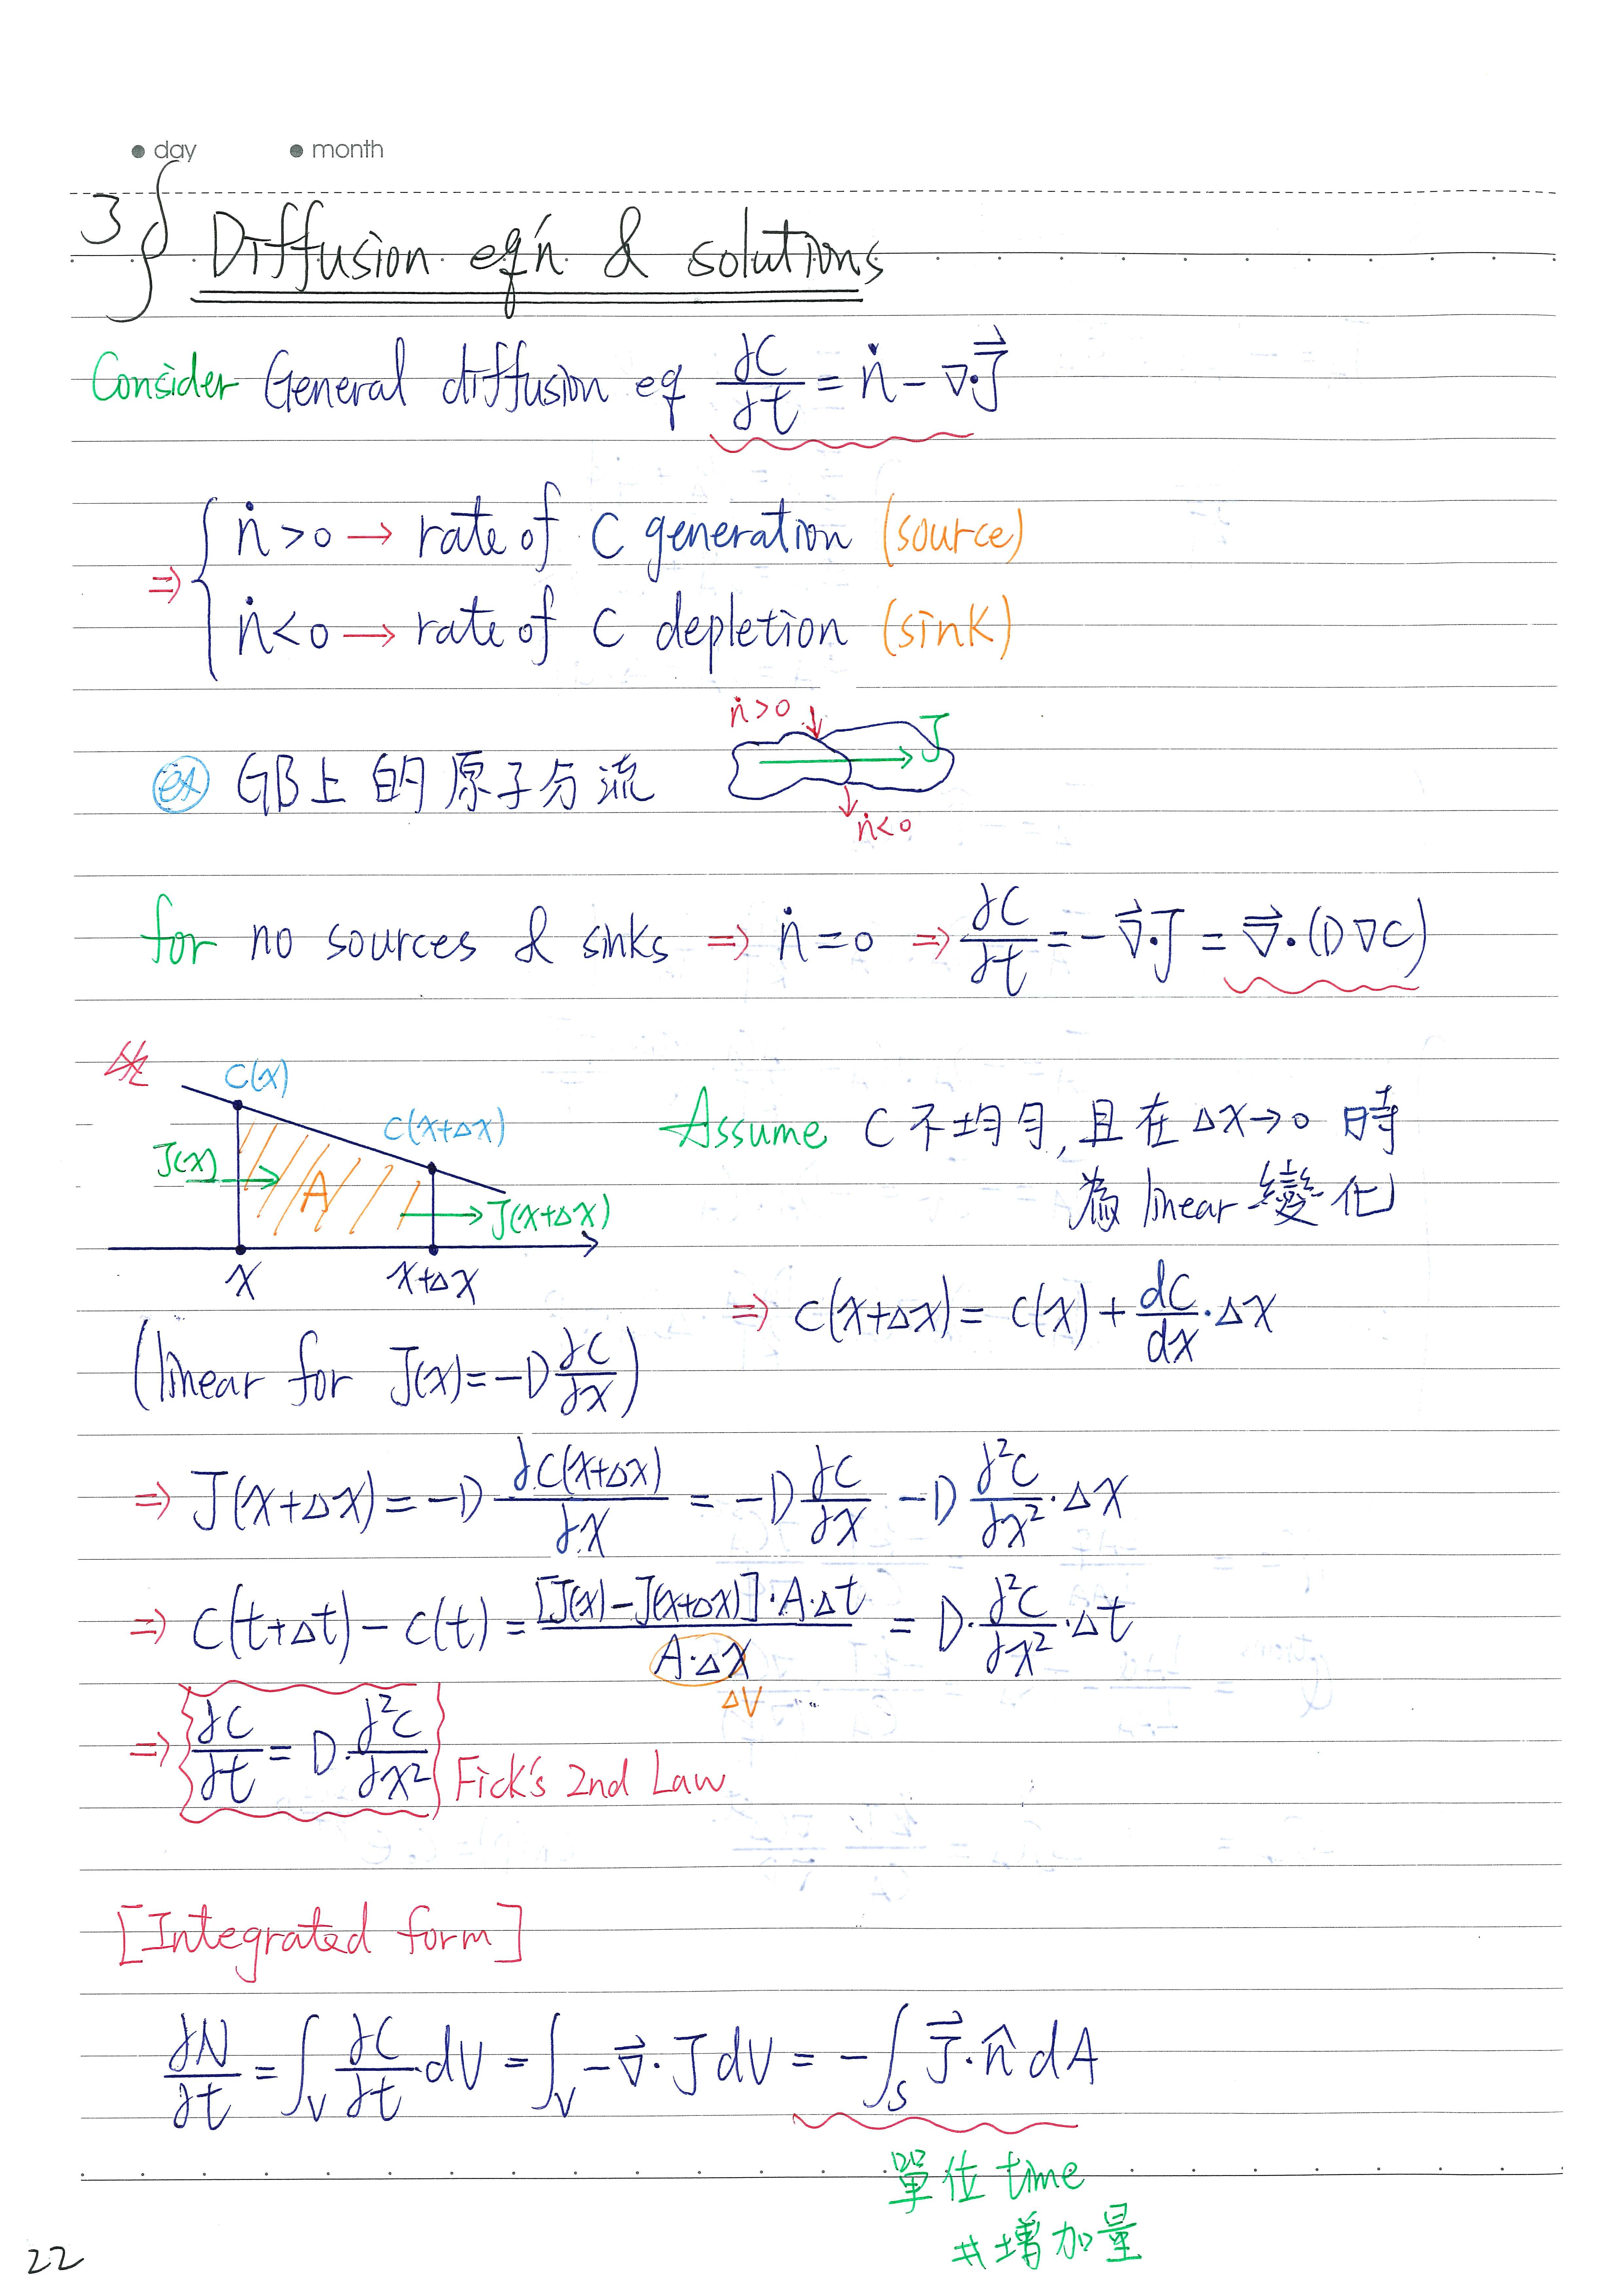 ● day ● month
3∮ Diffusion eq'n & solutions
Consider General diffusion eq ∂C/∂t = ṅ − ∇·J⃗
⇒ { ṅ>0 → rate of C generation (source)
ṅ<0 → rate of C depletion (sink)
ṅ>0 J
ex GB上的原子分流
ṅ<0
for no sources & sinks ⇒ ṅ=0 ⇒ ∂C/∂t = −∇⃗·J = ∇⃗·(D∇C)
C(x)
C(x+Δx) Assume C不均勻,且在Δx→0 時
J(x) A J(x+Δx) 為 linear 變化
x x+Δx
⇒ C(x+Δx) = C(x) + dC/dx·Δx
(linear for J(x)=−D ∂C/∂x)
⇒ J(x+Δx) = −D ∂C(x+Δx)/∂x = −D ∂C/∂x − D ∂²C/∂x²·Δx
⇒ C(t+Δt) − C(t) = [J(x)−J(x+Δx)]·A·Δt / A·Δx = D·∂²C/∂x²·Δt
ΔV
⇒ ∂C/∂t = D·∂²C/∂x² Fick's 2nd Law
[Integrated form]
∂N/∂t = ∫_V ∂C/∂t·dV = ∫_V −∇⃗·J dV = −∫_S J⃗·n̂ dA
單位 time
#增加量
22